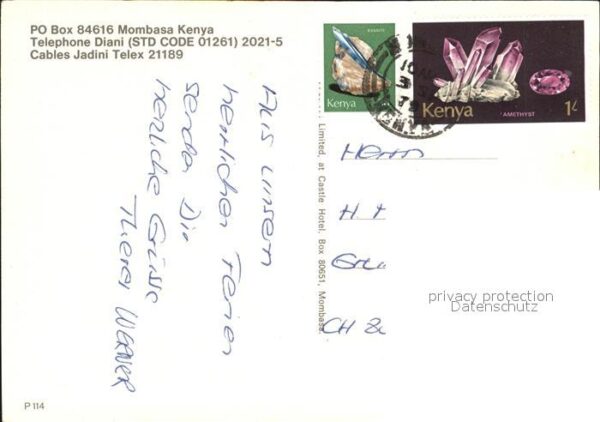 PO Box 84616 Mombasa Kenya
Telephone Diani (STD CODE 01261) 2021-5
Cables Jadini Telex 21189
Aus unsern
herrlichen Ferien
senden Dir
herzliche Grüsse
WERNER
Limited, at Castle Hotel, Box 80651, Mombasa
Kenya
Kenya
AMETHYST
1/-
Herrn
H
CH
privacy protection
Datenschutz
P 114